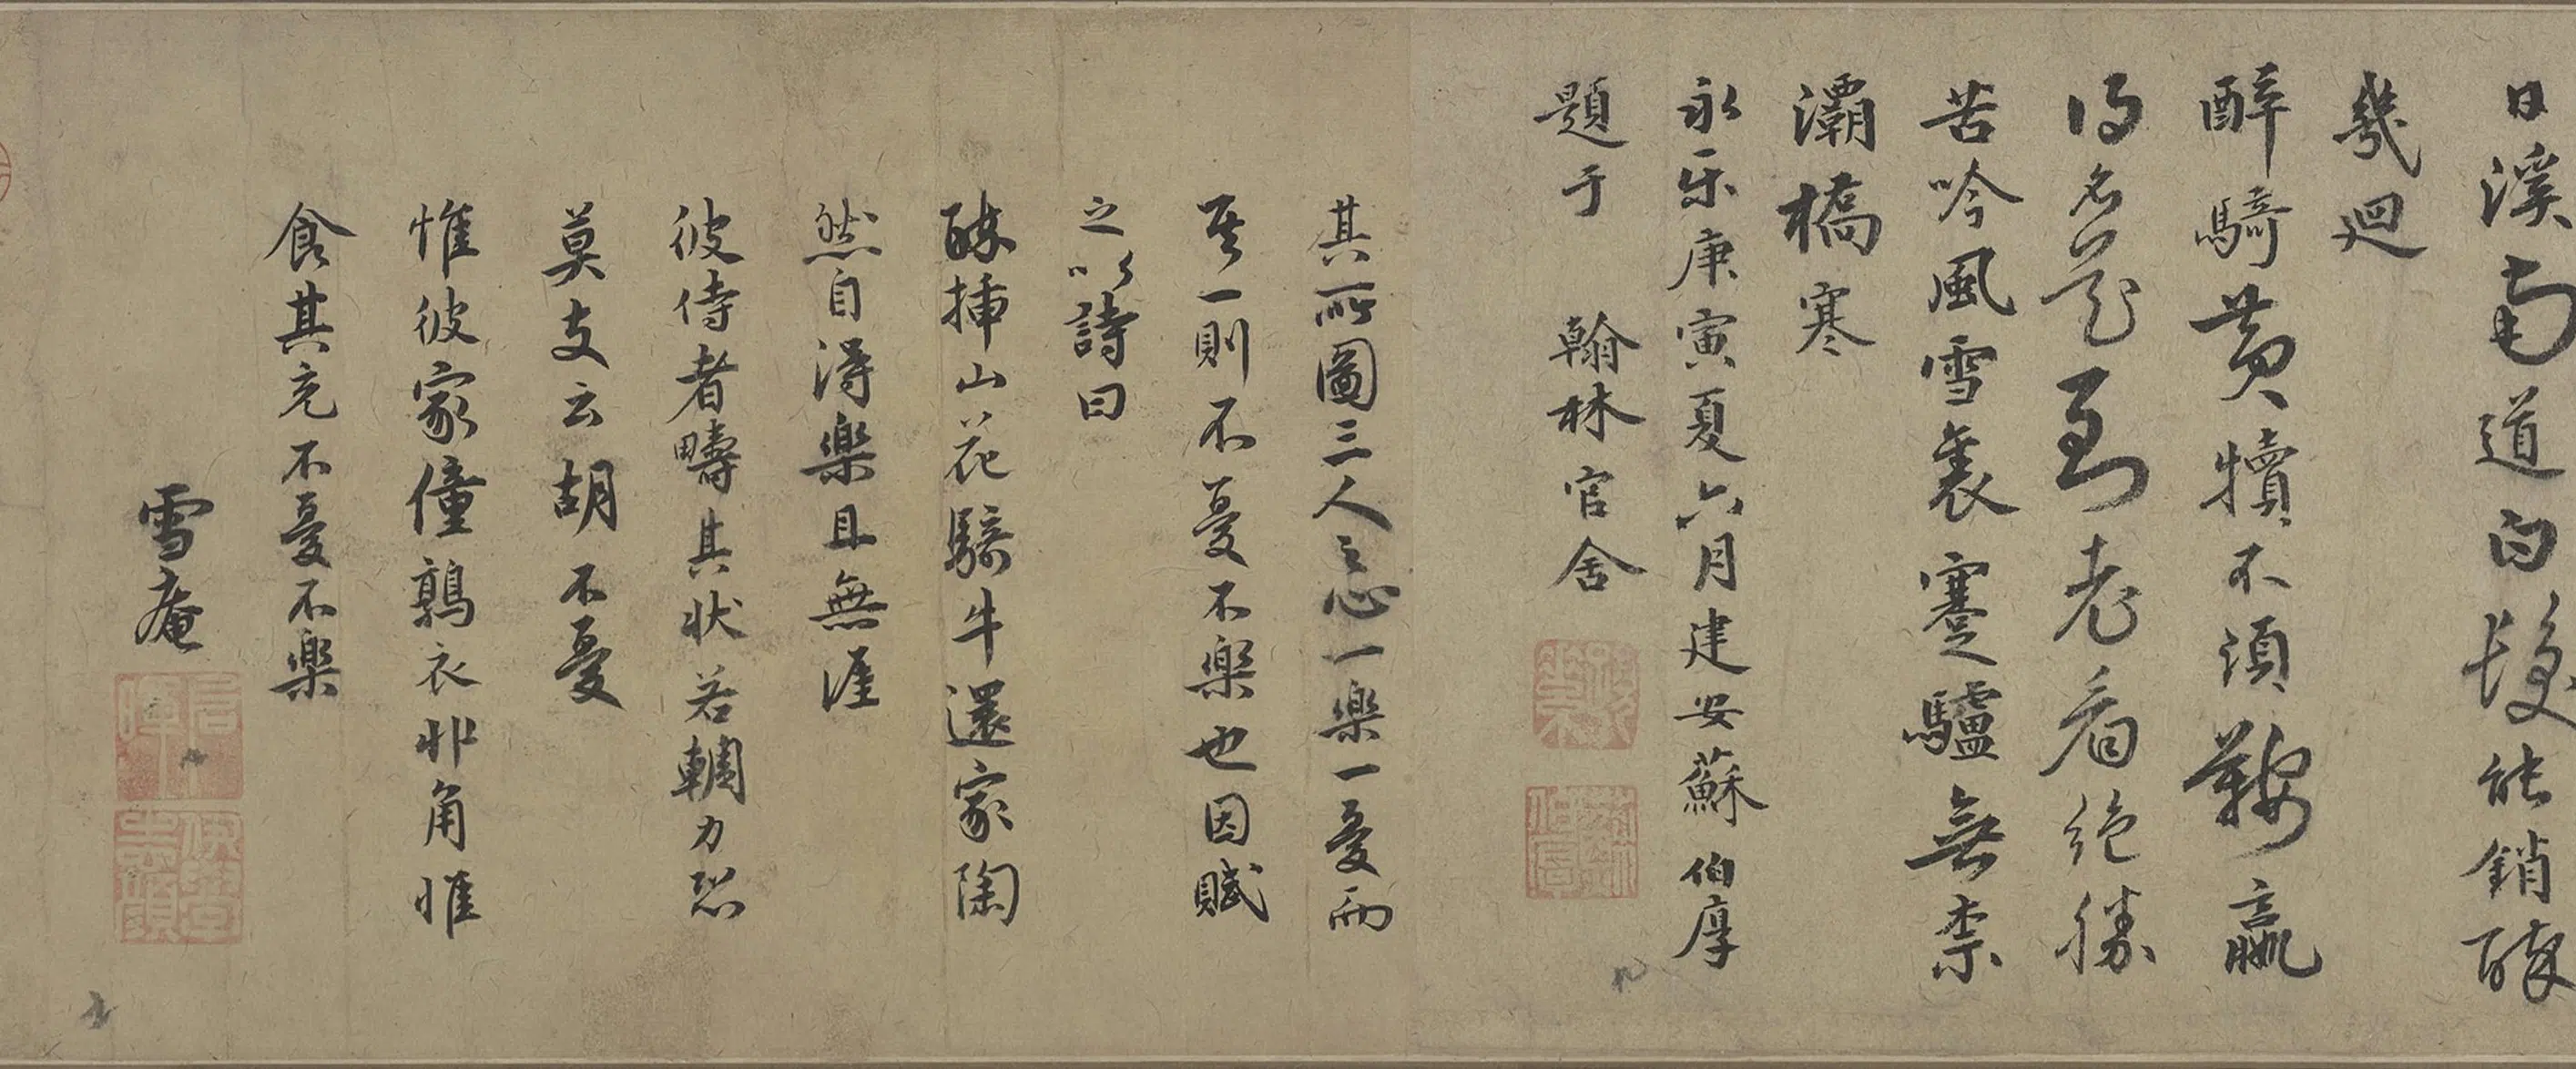 日溪南道白髮能銷醉
幾迴
醉騎黃犢不須鞍贏
得名花到老看絕勝
苦吟風雪裏蹇驢無柰
灞橋寒
永乐庚寅夏六月建安蘇伯厚
題于 翰林官舍
其所圖三人焉一樂一憂而
其一則不憂不樂也因賦
之以詩曰
醉揷山花騎牛還家陶
然自得樂且無涯
彼侍者疇其狀若輖力恐
莫支云胡不憂
惟彼家僮鶉衣丱角惟
食其充不憂不樂
雪庵